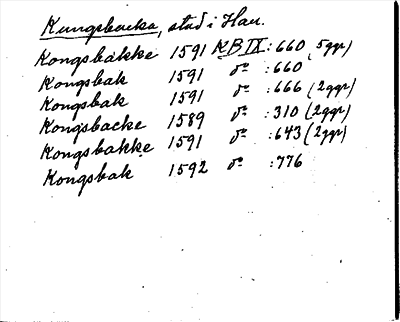 Kungsbacka, stad i Hall.
Kongsbakke 1591 KB IX :660 (5ggr)
Kongsbak 1591 do :660
Kongsbak 1591 do :666 (2ggr)
Kongsbacke 1589 do :310 (2ggr)
Kongsbakke 1591 do :643 (2ggr)
Kongsbak 1592 do :776